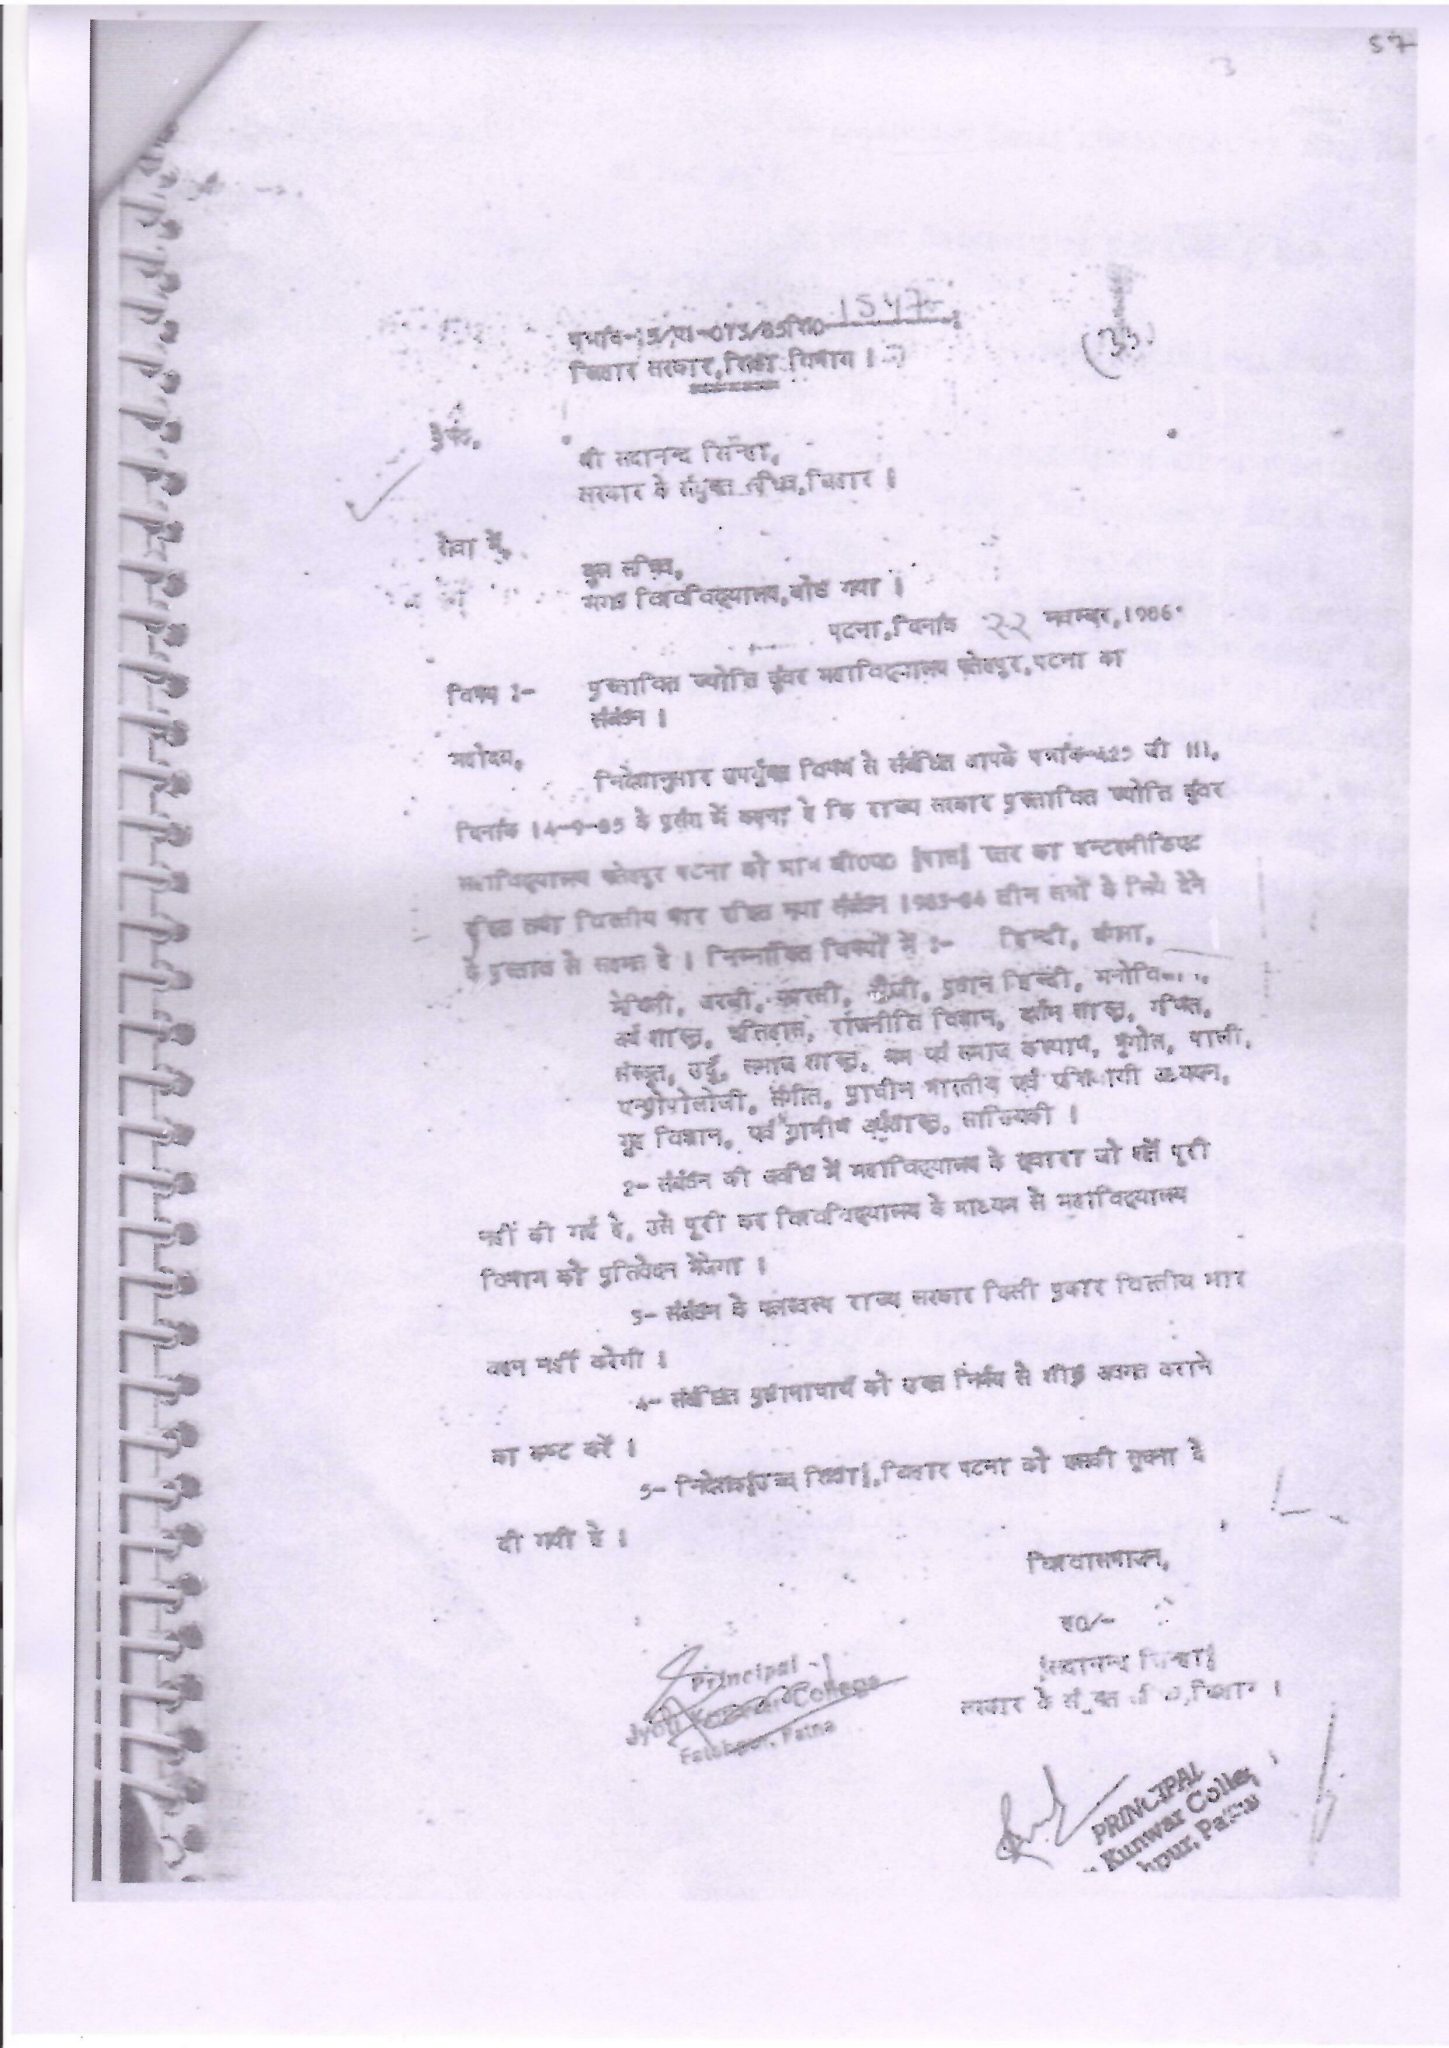 57
3
1547
पत्रांक-15/
बिहार सरकार, शिक्षा विभाग ।
(33)
प्रेषक,
श्री सदानन्द सिन्हा,
सरकार के संयुक्त सचिव, बिहार ।
सेवा में,
कुल सचिव,
मगध विश्वविद्यालय, बोध गया ।
पटना, दिनांक २२ नवम्बर, 1986
विषय :- प्रस्तावित ज्योति कुंवर महाविद्यालय फतेहपुर, पटना का
संबंधन ।
महोदय,
निदेशानुसार उपर्युक्त विषय से संबंधित आपके पत्रांक-429 जी III,
दिनांक 14-9-85 के प्रसंग में कहना है कि राज्य सरकार प्रस्तावित ज्योति कुंवर
महाविद्यालय फतेहपुर पटना को मात्र बी०ए० स्तर का इन्टरमीडिएट
रहित तथा वित्तीय भार रहित नया संबंधन 1983-84 तीन सत्रों के लिये देने
के प्रस्ताव से सहमत है । निम्नांकित विषयों में :- हिन्दी, बंगला,
मैथिली, अरबी, फारसी, अंग्रेजी, प्रधान हिन्दी,
अर्थ शास्त्र, इतिहास, राजनीति विज्ञान, दर्शन शास्त्र, गणित,
संस्कृत, उर्दू, समाज शास्त्र, श्रम एवं समाज कल्याण, भूगोल, पाली,
एन्थ्रोपोलोजी, संगीत, प्राचीन भारतीय एवं एशियायी अध्ययन,
गृह विज्ञान, एवं ग्रामीण अर्थशास्त्र, सांख्यिकी ।
2- संबंधन की अवधि में महाविद्यालय के द्वारा जो शर्तें पूरी
नहीं की गई है, उसे पूरी कर विश्वविद्यालय के माध्यम से महाविद्यालय
विभाग को प्रतिवेदन भेजेगा ।
3- संबंधन के फलस्वरूप राज्य सरकार किसी प्रकार वित्तीय भार
वहन नहीं करेगी ।
4- संबंधित प्रधानाचार्य को उक्त निर्णय से शीघ्र अवगत कराने
का कष्ट करें ।
5- निदेशक(उच्च शिक्षा), बिहार पटना को इसकी सूचना दे
दी गयी है ।
विश्वासभाजन,
ह०/-
(सदानन्द सिन्हा)
सरकार के संयुक्त सचिव, बिहार ।
Principal
Jyoti Kunwar College
Fatehpur, Patna
PRINCIPAL
Kunwar Colleg
hpur, Patna